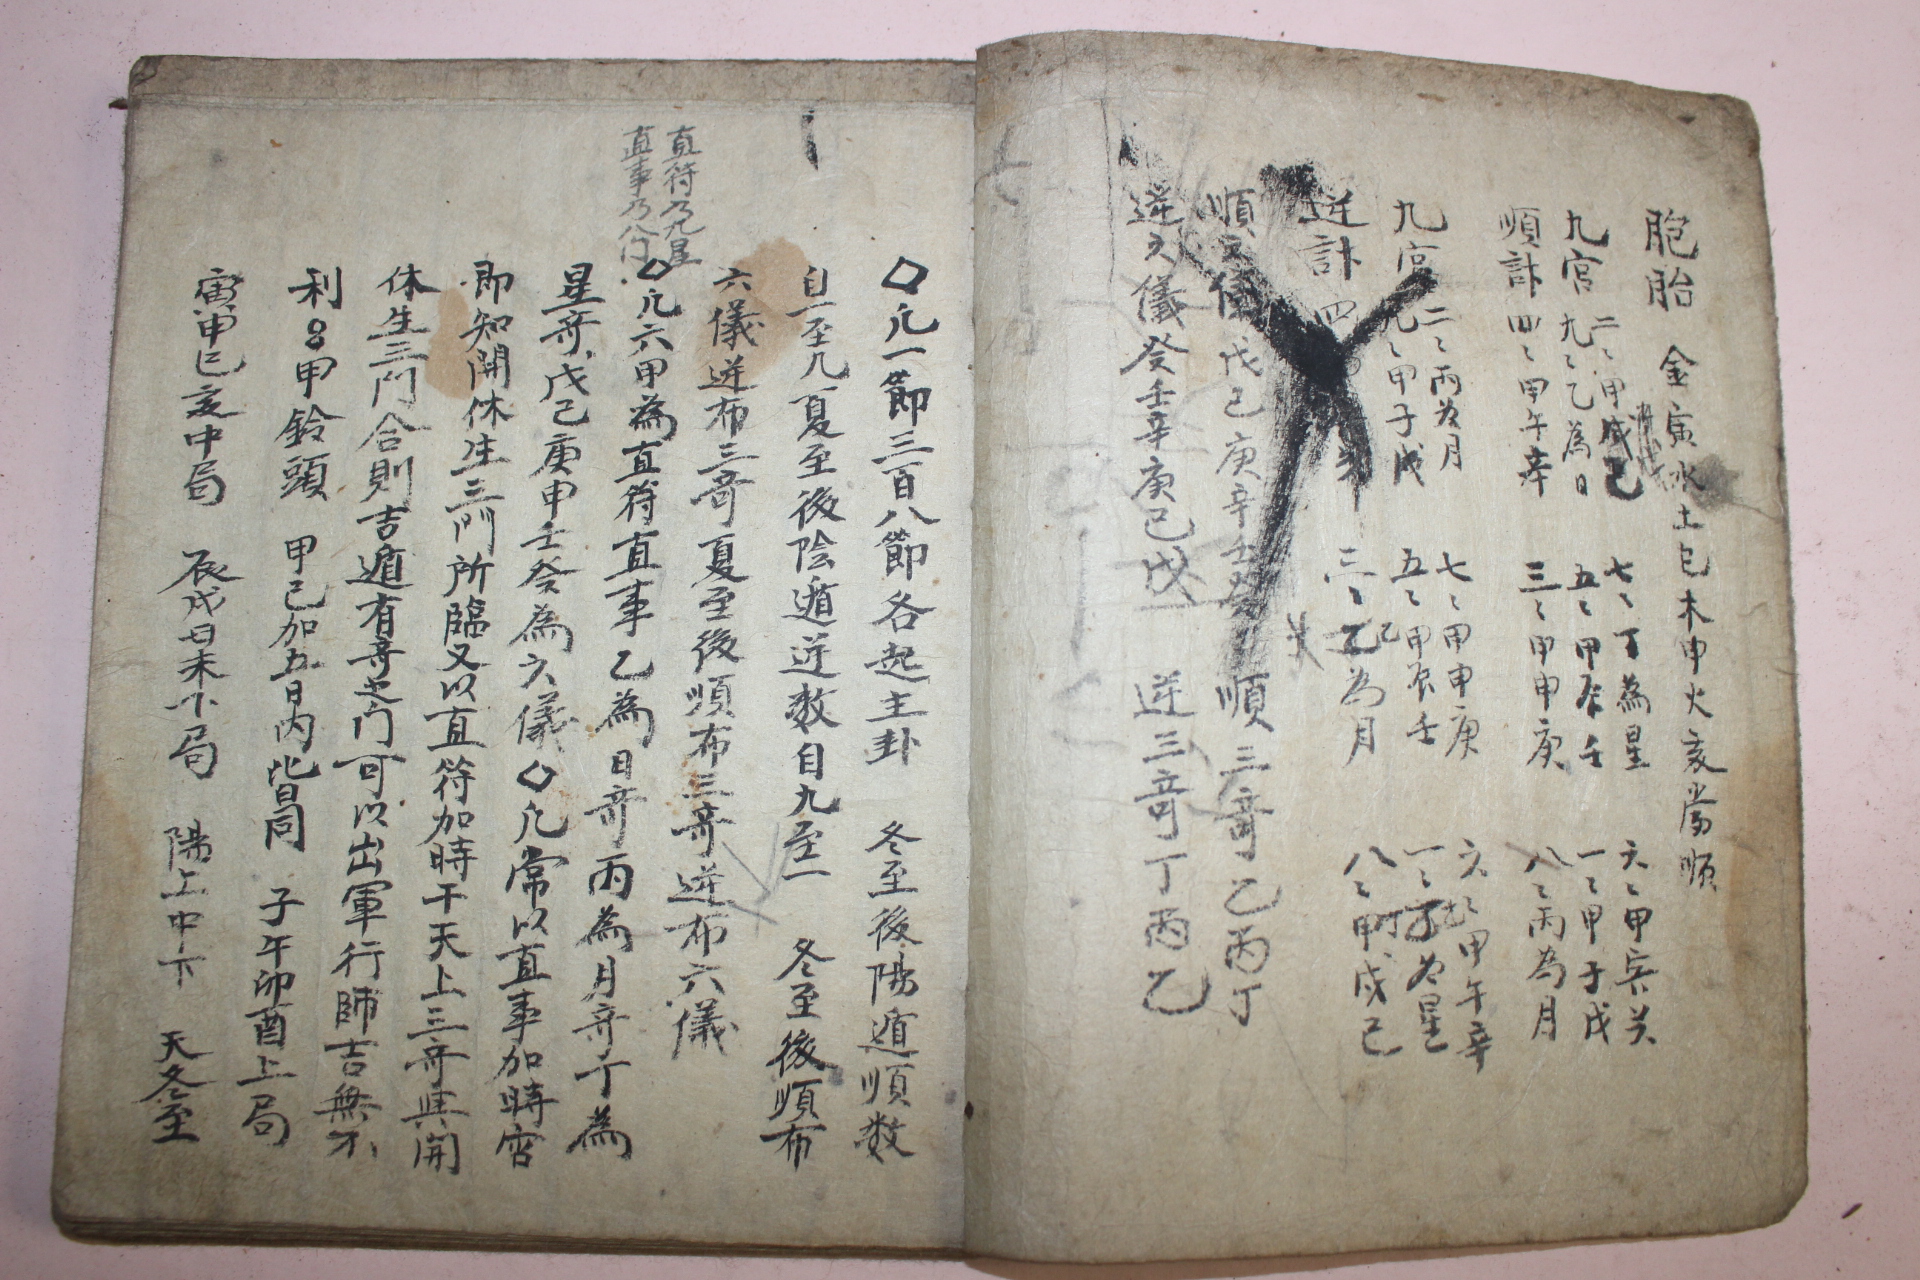 胞胎 金寅水土巳木申火亥當順
九宮 二〻甲戌己 七〻丁為星 六〻甲寅癸
九〻乙為日 五〻甲辰壬 一〻甲子戊
順計 四〻甲午辛 三〻甲申庚 八〻丙為月
九宮 二〻丙為月 七〻甲申庚 六〻甲午辛
九〻甲子戊 五〻甲辰壬 一〻丁為星
逆計 四 三〻乙為月 八〻甲戌己
順六儀戊己庚辛壬癸 順三竒乙丙丁
逆六儀癸壬辛庚己戊 逆三竒丁丙乙
◇凢一節三百八節各起主卦 冬至後陽遁順数
自一至九夏至後陰遁逆数自九至一 冬至後順布
六儀逆布三竒夏至後順布三竒逆布六儀
直符乃九星
直事乃八门
◇凢六甲為直符直事乙為日竒丙為月竒丁為
星竒戊己庚申壬癸為六儀◇凢常以直事加時宮
即知開休生三門所臨又以直符加時干天上三竒與開
休生三门合則吉遁有竒之门可以出軍行師吉無不
利 甲鈴頭 甲己加五日内皆同 子午卯酉上局
寅申巳亥中局 辰戌丑未下局 陽上中下 天冬至